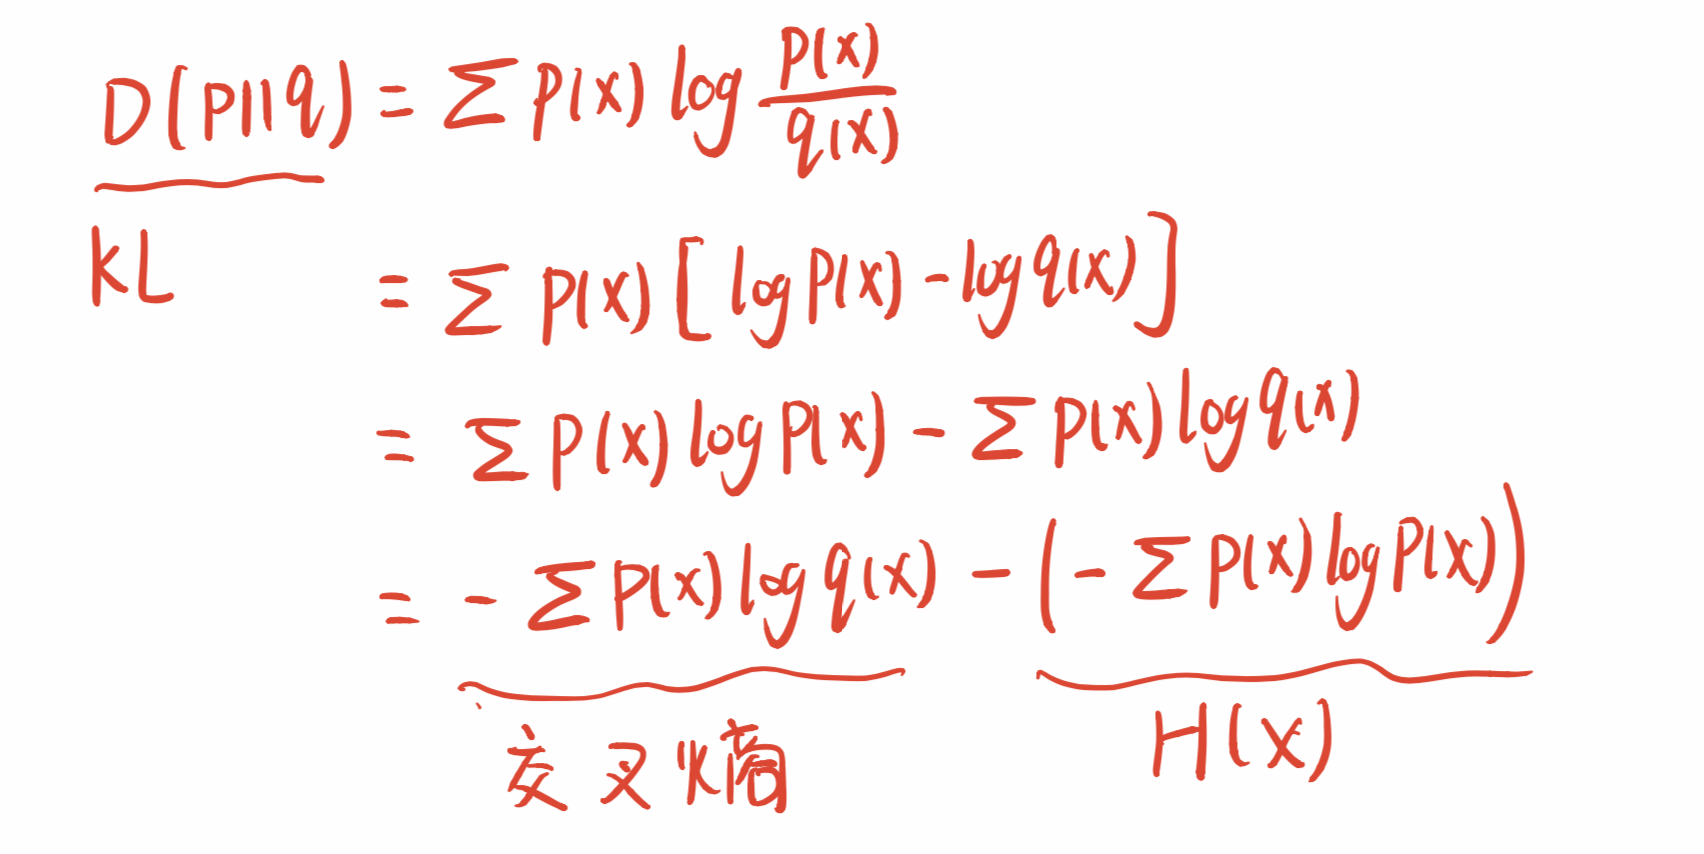 D(p||q) = ∑ p(x) log p(x)/q(x)
KL = ∑ p(x) [log p(x) - log q(x)]
= ∑ p(x) log p(x) - ∑ p(x) log q(x)
= - ∑ p(x) log q(x) - (- ∑ p(x) log p(x))
交叉熵 H(x)